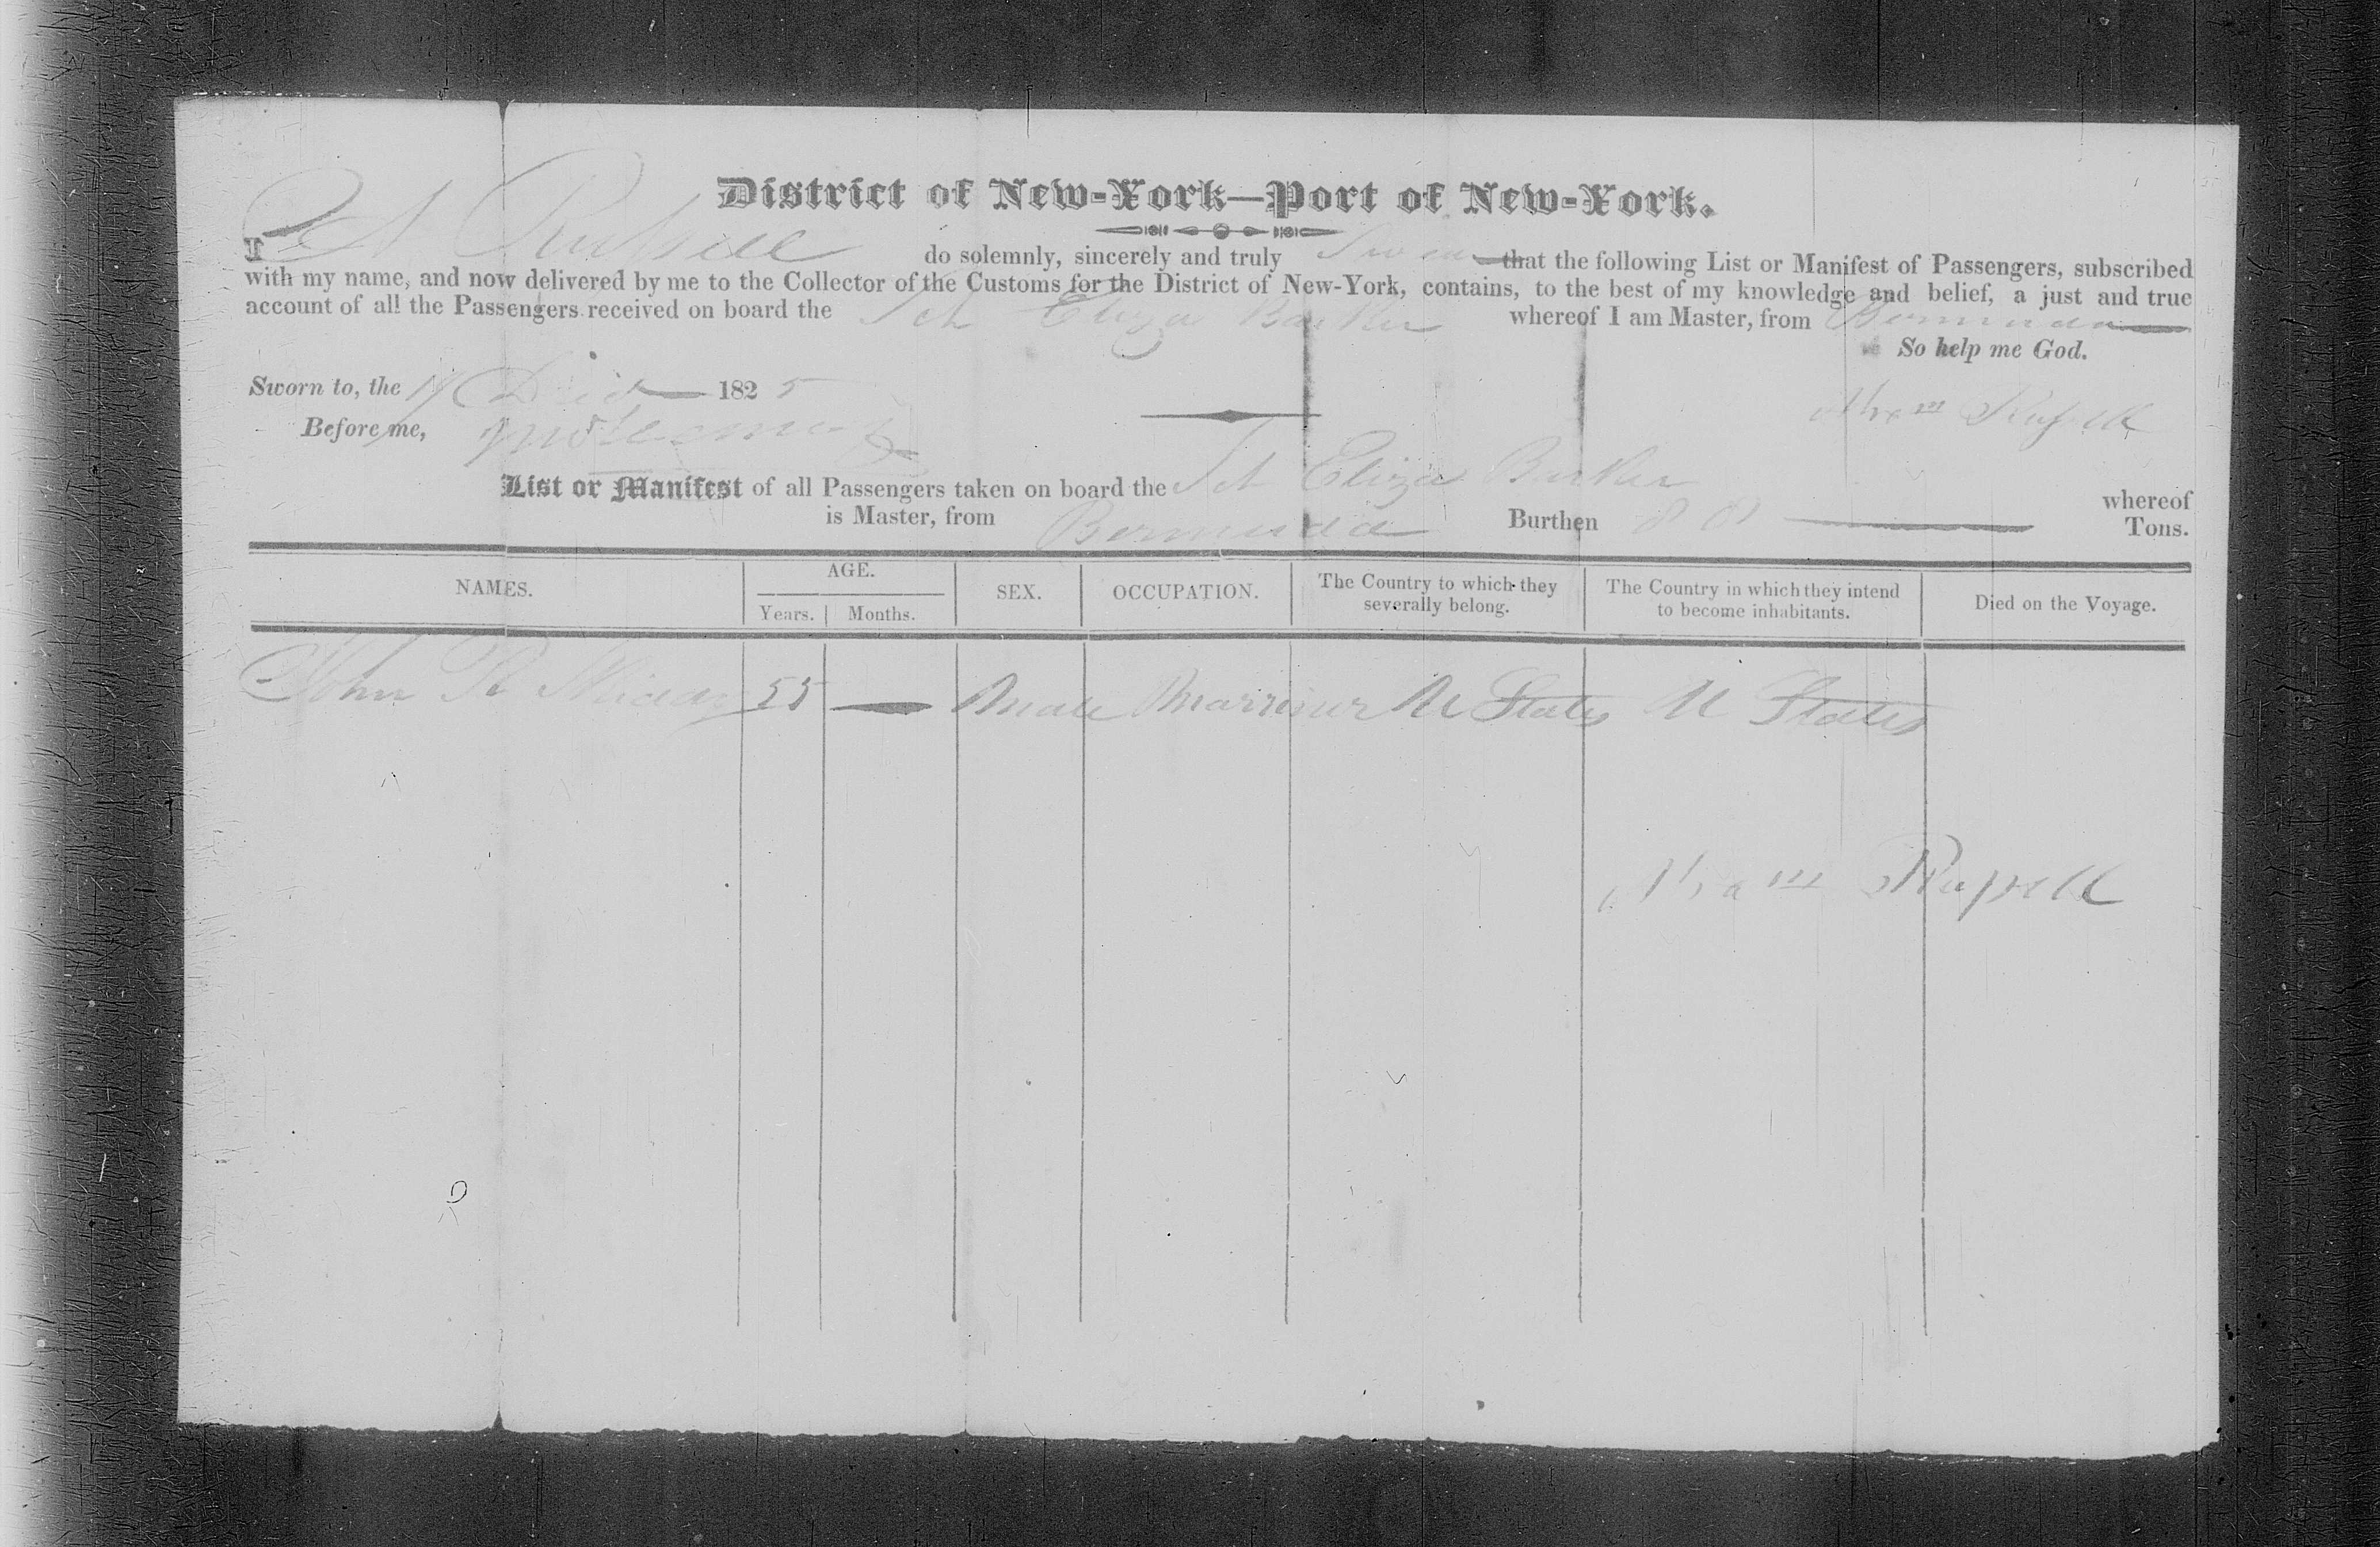 District of New-York—Port of New-York.
I A Russell do solemnly, sincerely and truly Swear that the following List or Manifest of Passengers, subscribed
with my name, and now delivered by me to the Collector of the Customs for the District of New-York, contains, to the best of my knowledge and belief, a just and true
account of all the Passengers received on board the Sch Eliza Barker whereof I am Master, from Bermuda
So help me God.
Sworn to, the 182 5
Abram Russell
Before me,
List or Manifest of all Passengers taken on board the Sch Eliza Barker whereof
is Master, from Bermuda Burthen Tons.
NAMES. AGE. SEX. OCCUPATION. The Country to which they severally belong. The Country in which they intend to become inhabitants. Died on the Voyage.
Years. Months.
John 55 — Male Marriner U States U States
Abram Russell